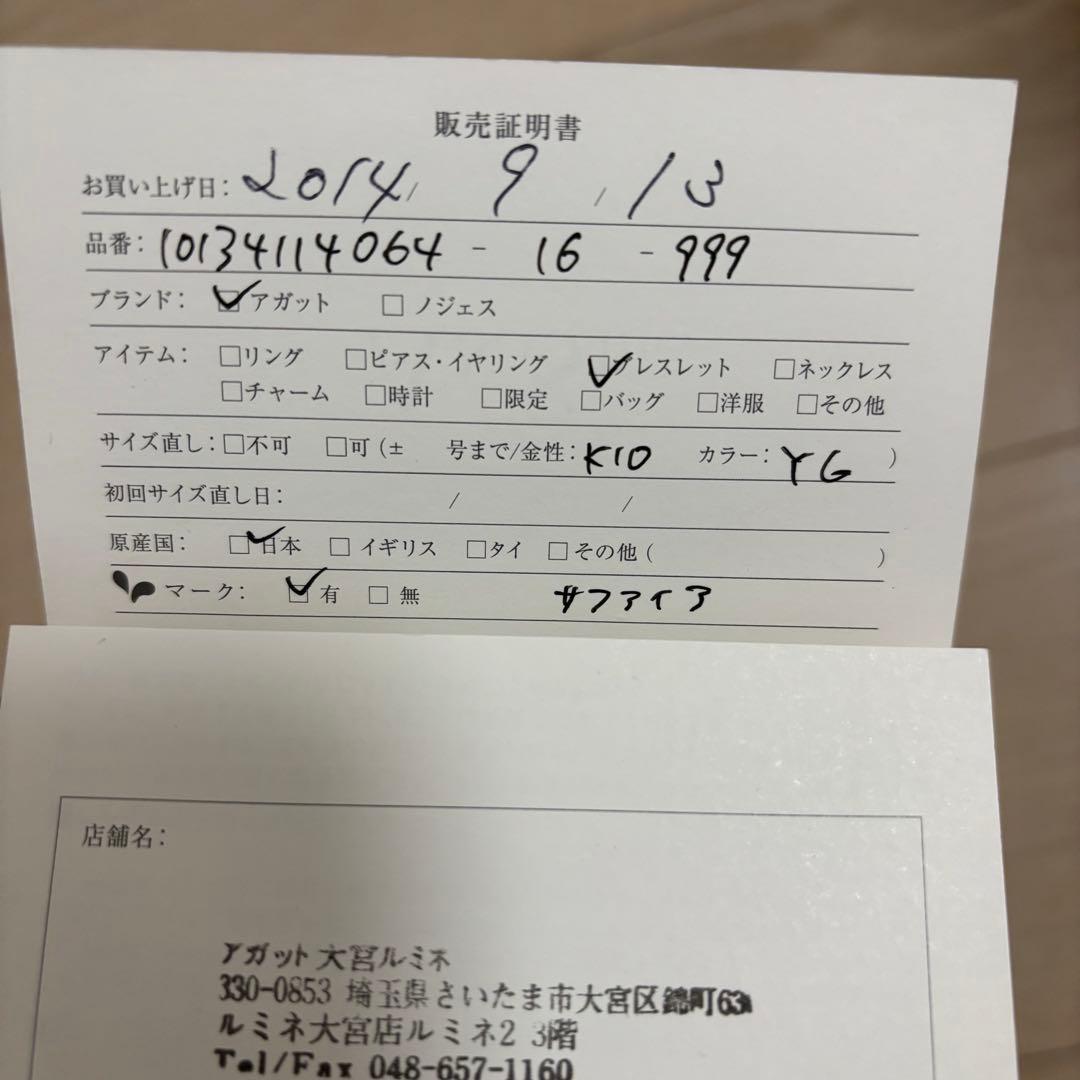 販売証明書
お買い上げ日: 2014 / 9 / 13
品番: 10134114064 - 16 - 999
ブランド: ☑アガット □ノジェス
アイテム: □リング □ピアス・イヤリング ☑ブレスレット □ネックレス
□チャーム □時計 □限定 □バッグ □洋服 □その他
サイズ直し: □不可 □可 (± 号まで/金性: K10 カラー: YG )
初回サイズ直し日: / /
原産国: ☑日本 □イギリス □タイ □その他 ( )
マーク: ☑有 □無 サファイア
店舗名:
アガット 大宮ルミネ
330-0853 埼玉県さいたま市大宮区錦町630
ルミネ大宮店ルミネ2 3階
Tel/Fax 048-657-1160